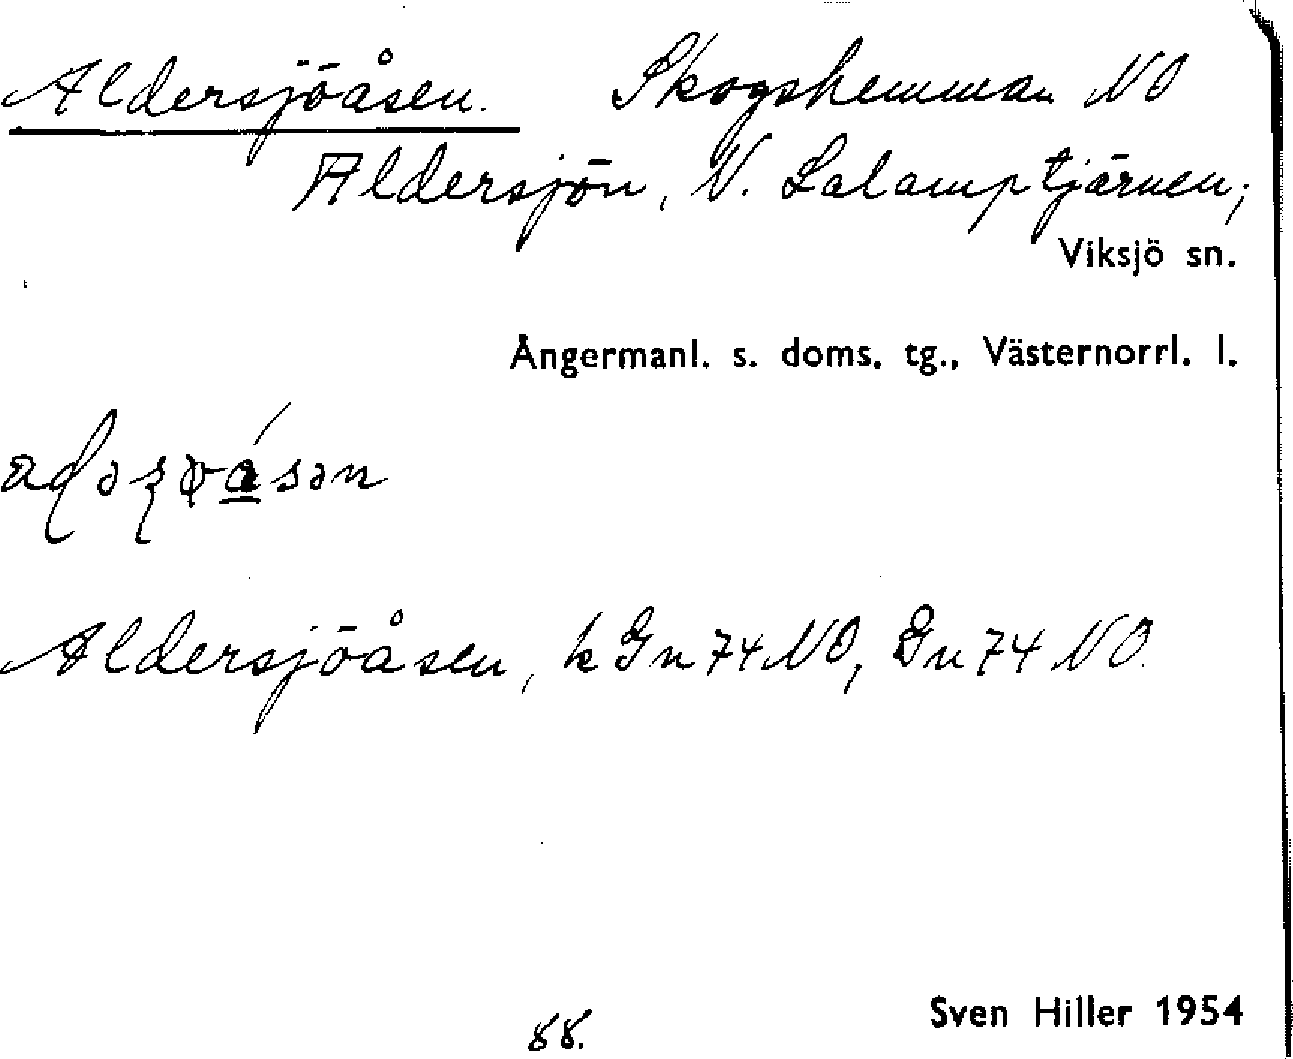 Aldersjöåsen. Skogshemman NO
Aldersjön, V. Lalamptjärnen;
Viksjö sn.
Ångermanl. s. doms. tg., Västernorrl. l.
Aldersjöåsen, k Gn 74 NO, Gn 74 NO.
88.
Sven Hiller 1954